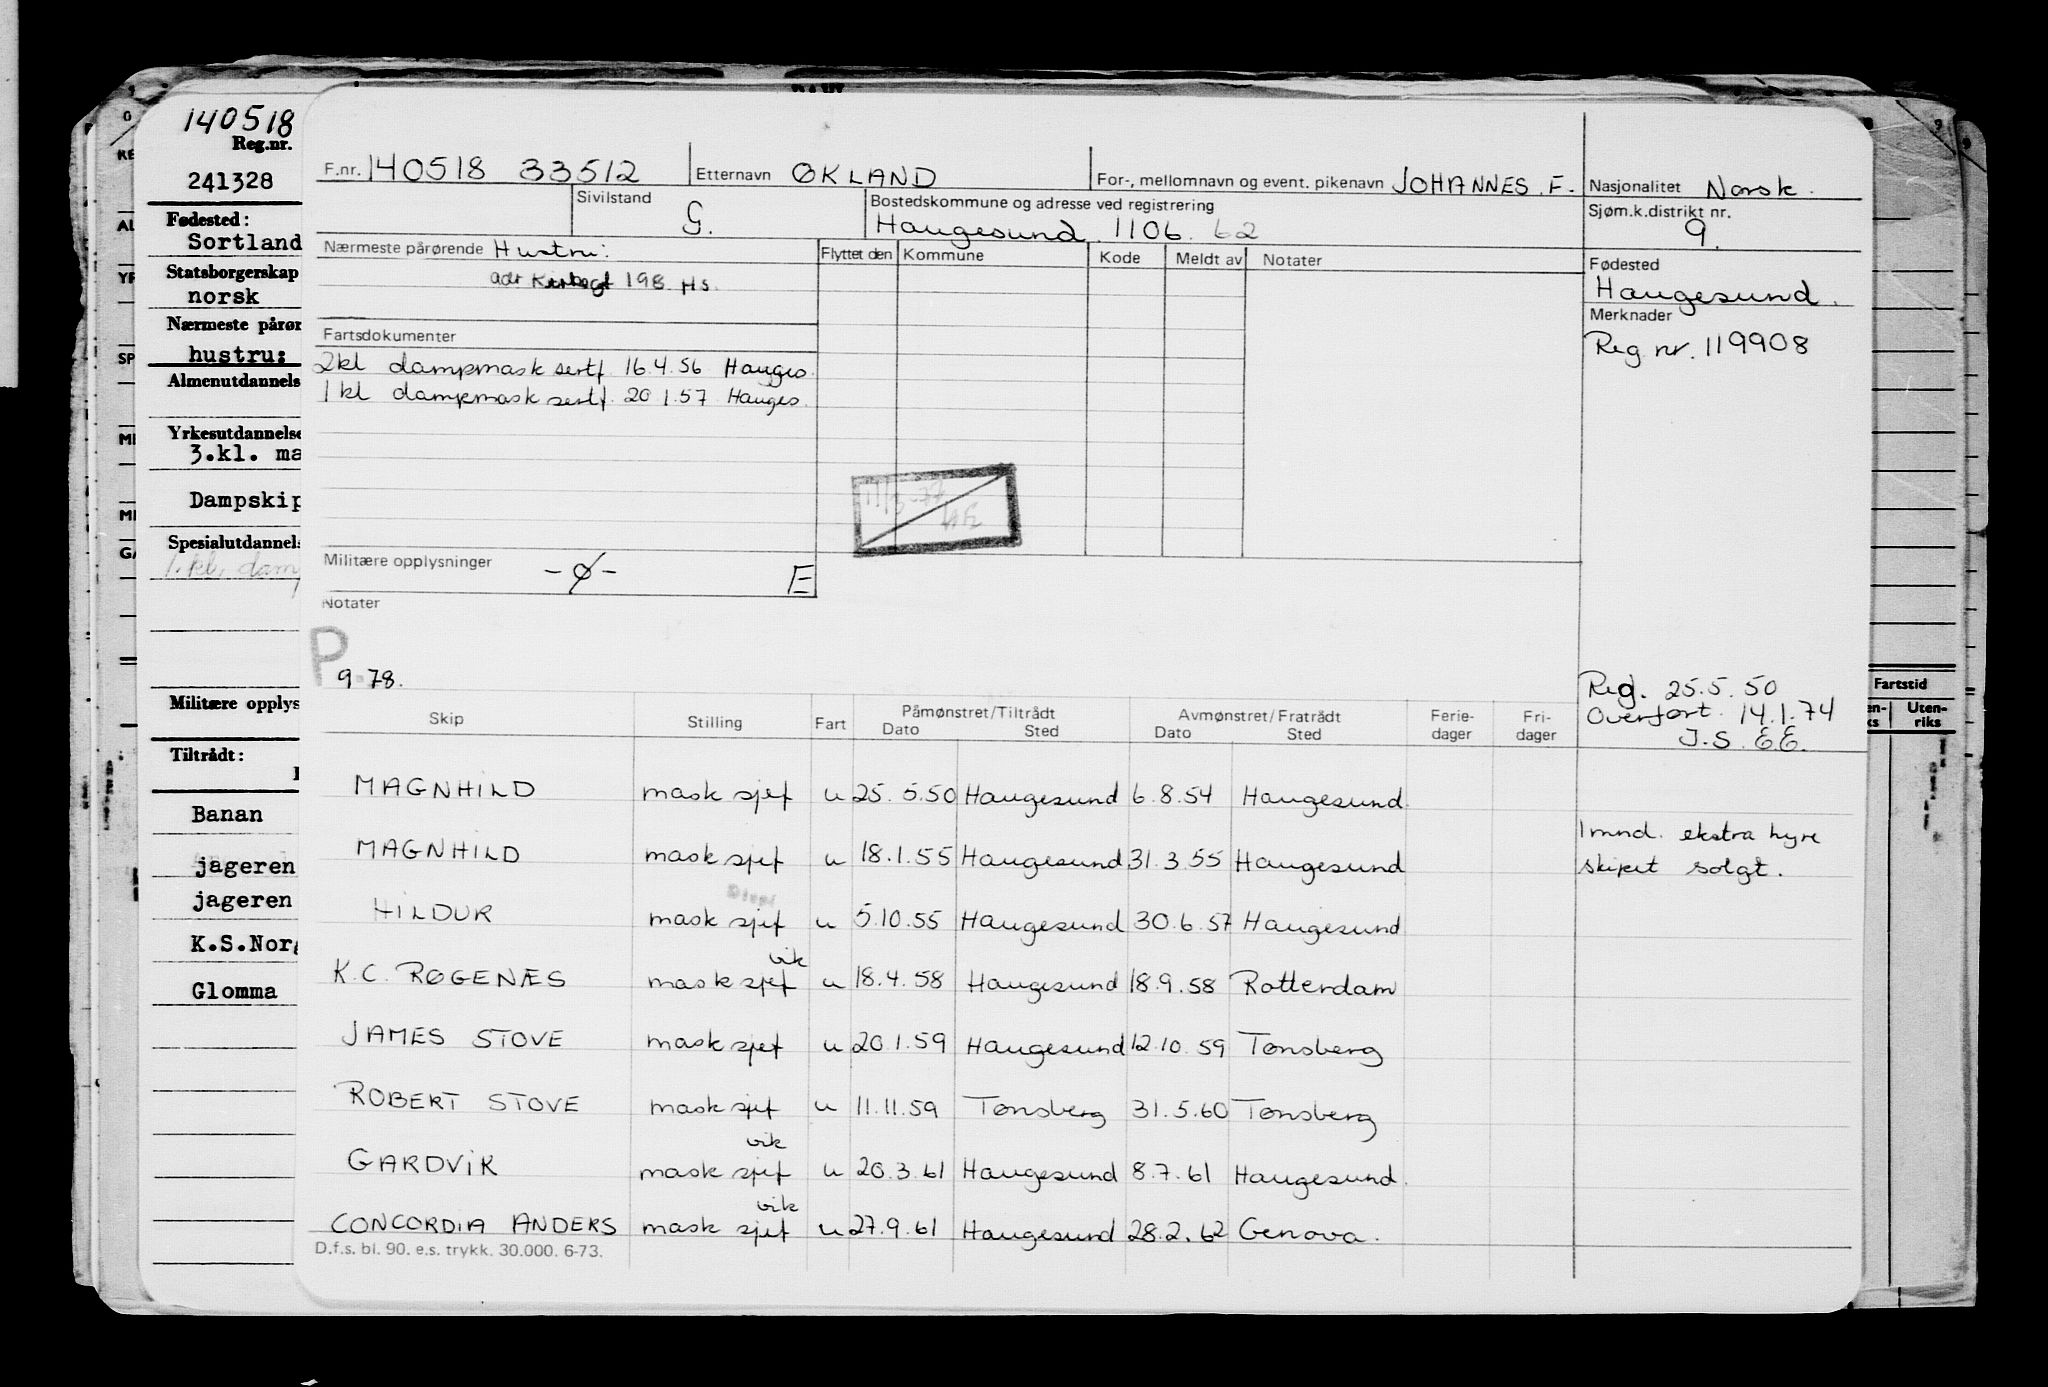 140518
Reg.nr.
241328
Fødested:
Sortland
Statsborgerskap
norsk
Nærmeste pårør
hustru:
Almenutdannels
Yrkesutdannelse
3.kl. ma
Dampskip
Spesialutdannels
1. kl. dam
Militære opplys
Tiltrådt:
Banan
jageren
jageren
K.S.Norg
Glomma
F.nr. 140518 33512 Etternavn ØKLAND For-, mellomnavn og event. pikenavn JOHANNES F. Nasjonalitet Norsk.
Sivilstand G. Bostedskommune og adresse ved registrering Sjøm.k.distrikt nr.
Haugesund. 1106. 62 9.
Nærmeste pårørende Hustru: Flyttet den Kommune Kode Meldt av Notater Fødested
adr 198 Hs. Haugesund.
Merknader
Fartsdokumenter Reg nr. 119908
2kl dampmask sertf. 16.4.56 Hauges.
1 kl dampmask sertf. 20 1.57 Hauges.
Militære opplysninger -ø- E
Notater
P
9.78.
Reg. 25.5.50
Overført. 14.1.74
J.S. E.E.
Skip Stilling Fart Påmønstret/Tiltrådt Avmønstret/Fratrådt Ferie- Fri-
Dato Sted Dato Sted dager dager
MAGNHILD mask sjef u 25.5.50 Haugesund 6.8.54 Haugesund.
MAGNHILD mask sjef u 18.1.55 Haugesund 31.3.55 Haugesund 1 mnd. ekstra hyre
skipet solgt.
HILDUR mask sjef u 5.10.55 Haugesund 30.6.57 Haugesund
vik
K.C. ROGENÆS mask sjef u 18.4.58 Haugesund 18.9.58 Rotterdam
JAMES STOVE mask sjef u 20.1.59 Haugesund 12.10.59 Tønsberg
ROBERT STOVE mask sjef u 11.11.59 Tønsberg 31.5.60 Tønsberg
vik
GARDVIK mask sjef u 20.3.61 Haugesund 8.7.61 Haugesund.
vik
CONCORDIA ANDERS mask sjef u 27.9.61 Haugesund 28.2.62 Genova.
D.f.s. bl. 90. e.s. trykk. 30.000. 6-73.
Fartstid
Uten-
riks